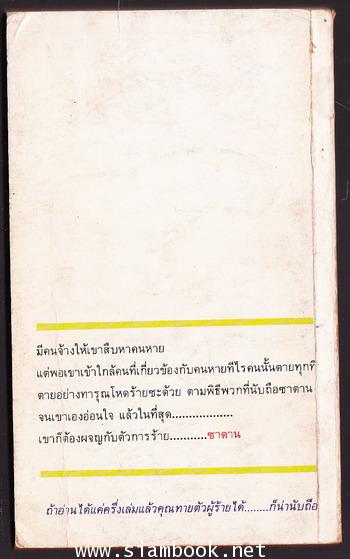 มีคนจ้างให้เขาสืบหาคนหาย
แต่พอเขาเข้าใกล้คนที่เกี่ยวข้องกับคนหายทีไรคนนั้นตายทุกที
ตายอย่างทารุณโหดร้ายซะด้วย ตามพิธีพวกที่นับถือซาตาน
จนเขาเองอ่อนใจ แล้วในที่สุด..................
เขาก็ต้องผจญกับตัวการร้าย...........ซาตาน
ถ้าอ่านได้แค่ครึ่งเล่มแล้วคุณทายตัวผู้ร้ายได้........ก็น่านับถือ
www.siambook.net